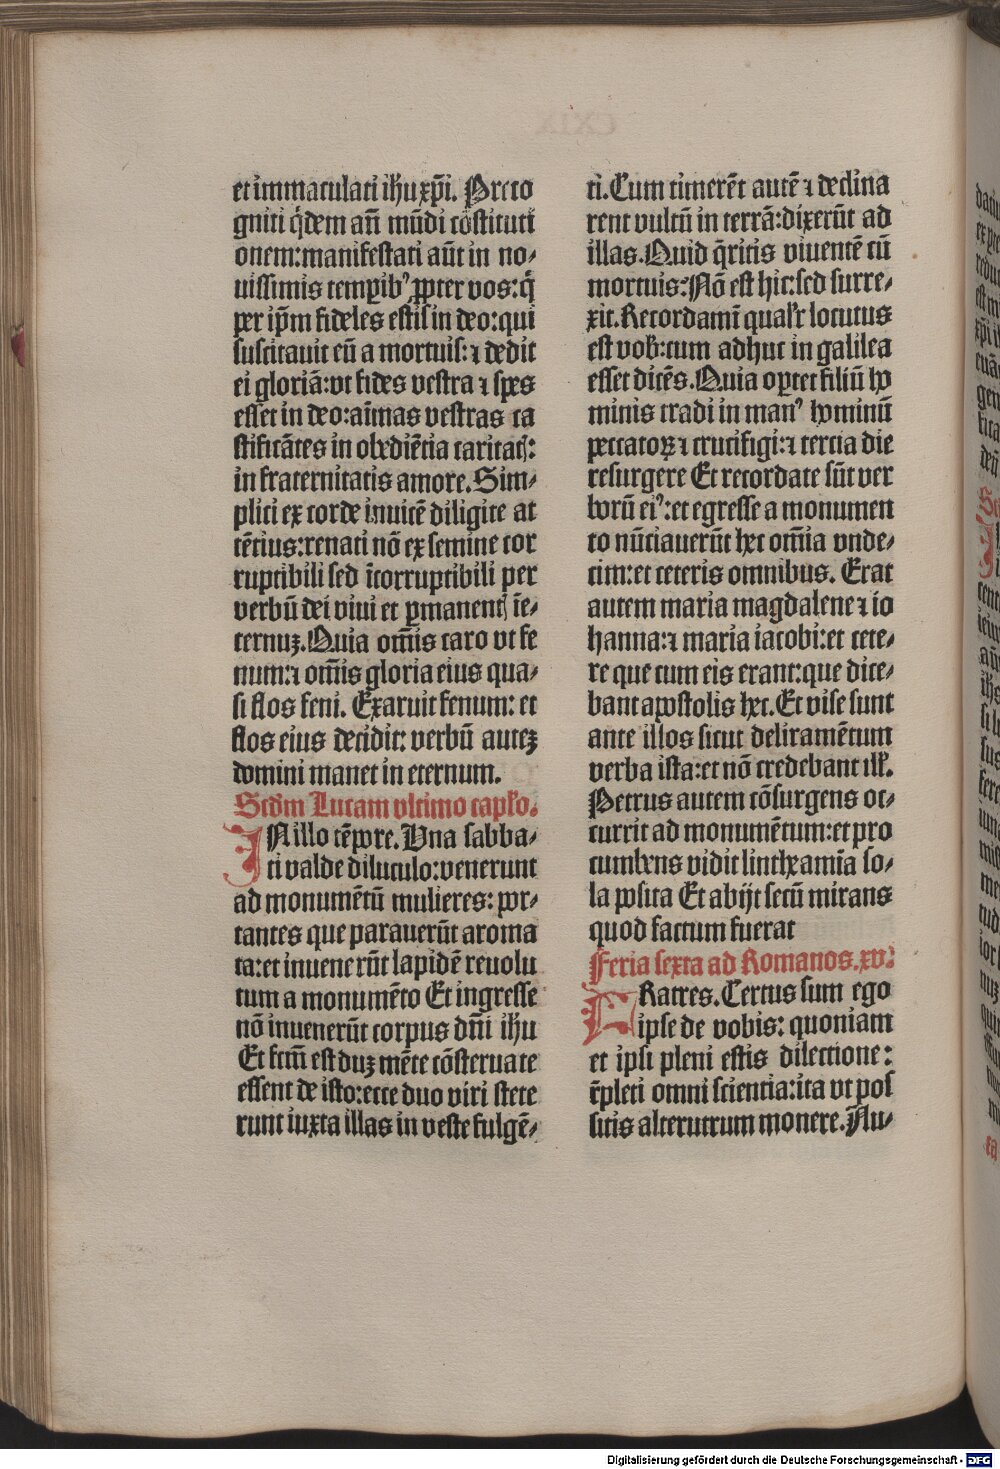 et immaculati ihu xp̄i. Preco
gniti q̄dem an̄ mūdi cōstituti
onem: manifestati aūt in no⸗
uissimis temporibꝰ ꝓpter vos: q̄
per ip̄m fideles estis in deo: qui
suscitauit eū a mortuis: ⁊ dedit
ei gloriā: vt fides vestra ⁊ spes
esset in deo: aīmas vestras ca
stificātes in obediētia caritatꝭ:
in fraternitatis amore. Sim⸗
plici ex corde inuicē diligite at
tētius: renati nō ex semine cor
ruptibili sed īcorruptibili per
verbū dei viui et ꝑmanentꝭ ī e⸗
ternuꝫ. Quia om̄is caro vt fe
num: ⁊ om̄is gloria eius qua⸗
si flos feni. Exaruit fenum: et
flos eius decidit: verbū auteꝫ
domini manet in eternum.
Scd̄m Lucam vltimo capł'o.
IN illo tēpore. Vna sabba⸗
ti valde diluculo: venerunt
ad monumētū mulieres: por⸗
tantes que parauerūt aroma
ta: et inuenerūt lapidē reuolu
tum a monumēto Et ingresse
nō inuenerūt corpus dn̄i ihu
Et fcm̄ est duꝫ mēte cōsternate
essent de isto: ecce duo viri stete
runt iuxta illas in veste fulgē⸗
ti. Cum timerēt autē ⁊ declina
rent vultū in terrā: dixerūt ad
illas. Quid q̄ritis viuentē cū
mortuis: Nō est hic: sed surre⸗
xit. Recordamī qualr̄ locutus
est vob̄: cum adhuc in galilea
esset dicēs. Quia oꝑtet filiū ho
minis tradi in manꝰ hominū
peccatoꝝ ⁊ crucifigi: ⁊ tercia die
resurgere Et recordate sūt ver
borū eiꝰ: et egresse a monumen
to nūciauerūt hec om̄ia vnde⸗
cim: et ceteris omnibus. Erat
autem maria magdalene ⁊ io
hanna: ⁊ maria iacobi: et cete⸗
re que cum eis erant: que dice⸗
bant apostolis hec. Et vise sunt
ante illos sicut deliramētum
verba ista: et nō credebant ill'.
Petrus autem cōsurgens oc⸗
currit ad monumētum: et pro
cumbens vidit lintheamīa so⸗
la posita Et abijt secū mirans
quod factum fuerat
Feria sexta ad Romanos. xv.
FRatres. Certus sum ego
ipse de vobis: quoniam
et ipsi pleni estis dilectione:
r̄pleti omni scientia: ita vt pos
sitis alterutrum monere. Nu⸗
Digitalisierung gefördert durch die Deutsche Forschungsgemeinschaft - DFG